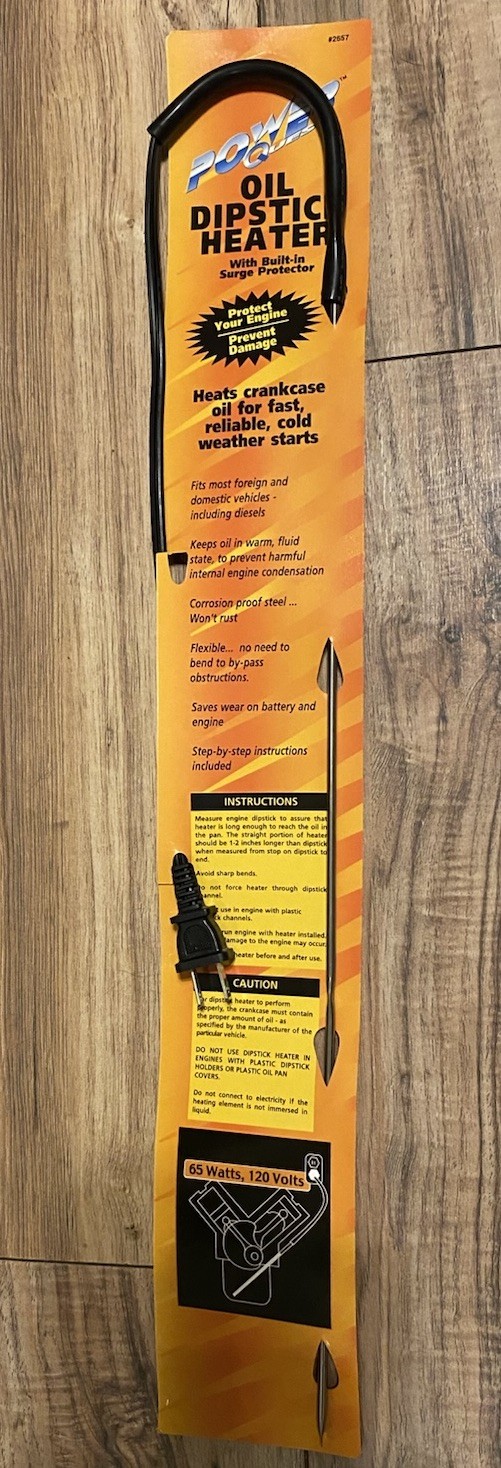 #2557
POWER
QUEST
TM
OIL
DIPSTIC
HEATER
With Built-in
Surge Protector
Protect
Your Engine
Prevent
Damage
Heats crankcase
oil for fast,
reliable, cold
weather starts
Fits most foreign and
domestic vehicles -
including diesels
Keeps oil in warm, fluid
state, to prevent harmful
internal engine condensation
Corrosion proof steel ...
Won't rust
Flexible... no need to
bend to by-pass
obstructions.
Saves wear on battery and
engine
Step-by-step instructions
included
INSTRUCTIONS
Measure engine dipstick to assure that
heater is long enough to reach the oil in
the pan. The straight portion of heater
should be 1-2 inches longer than dipstick
when measured from stop on dipstick to
end.
Avoid sharp bends.
Do not force heater through dipstick
channel.
use in engine with plastic
channels.
run engine with heater installed.
damage to the engine may occur.
heater before and after use.
CAUTION
For dipstick heater to perform
properly, the crankcase must contain
the proper amount of oil - as
specified by the manufacturer of the
particular vehicle.
DO NOT USE DIPSTICK HEATER IN
ENGINES WITH PLASTIC DIPSTICK
HOLDERS OR PLASTIC OIL PAN
COVERS.
Do not connect to electricity if the
heating element is not immersed in
liquid.
65 Watts, 120 Volts